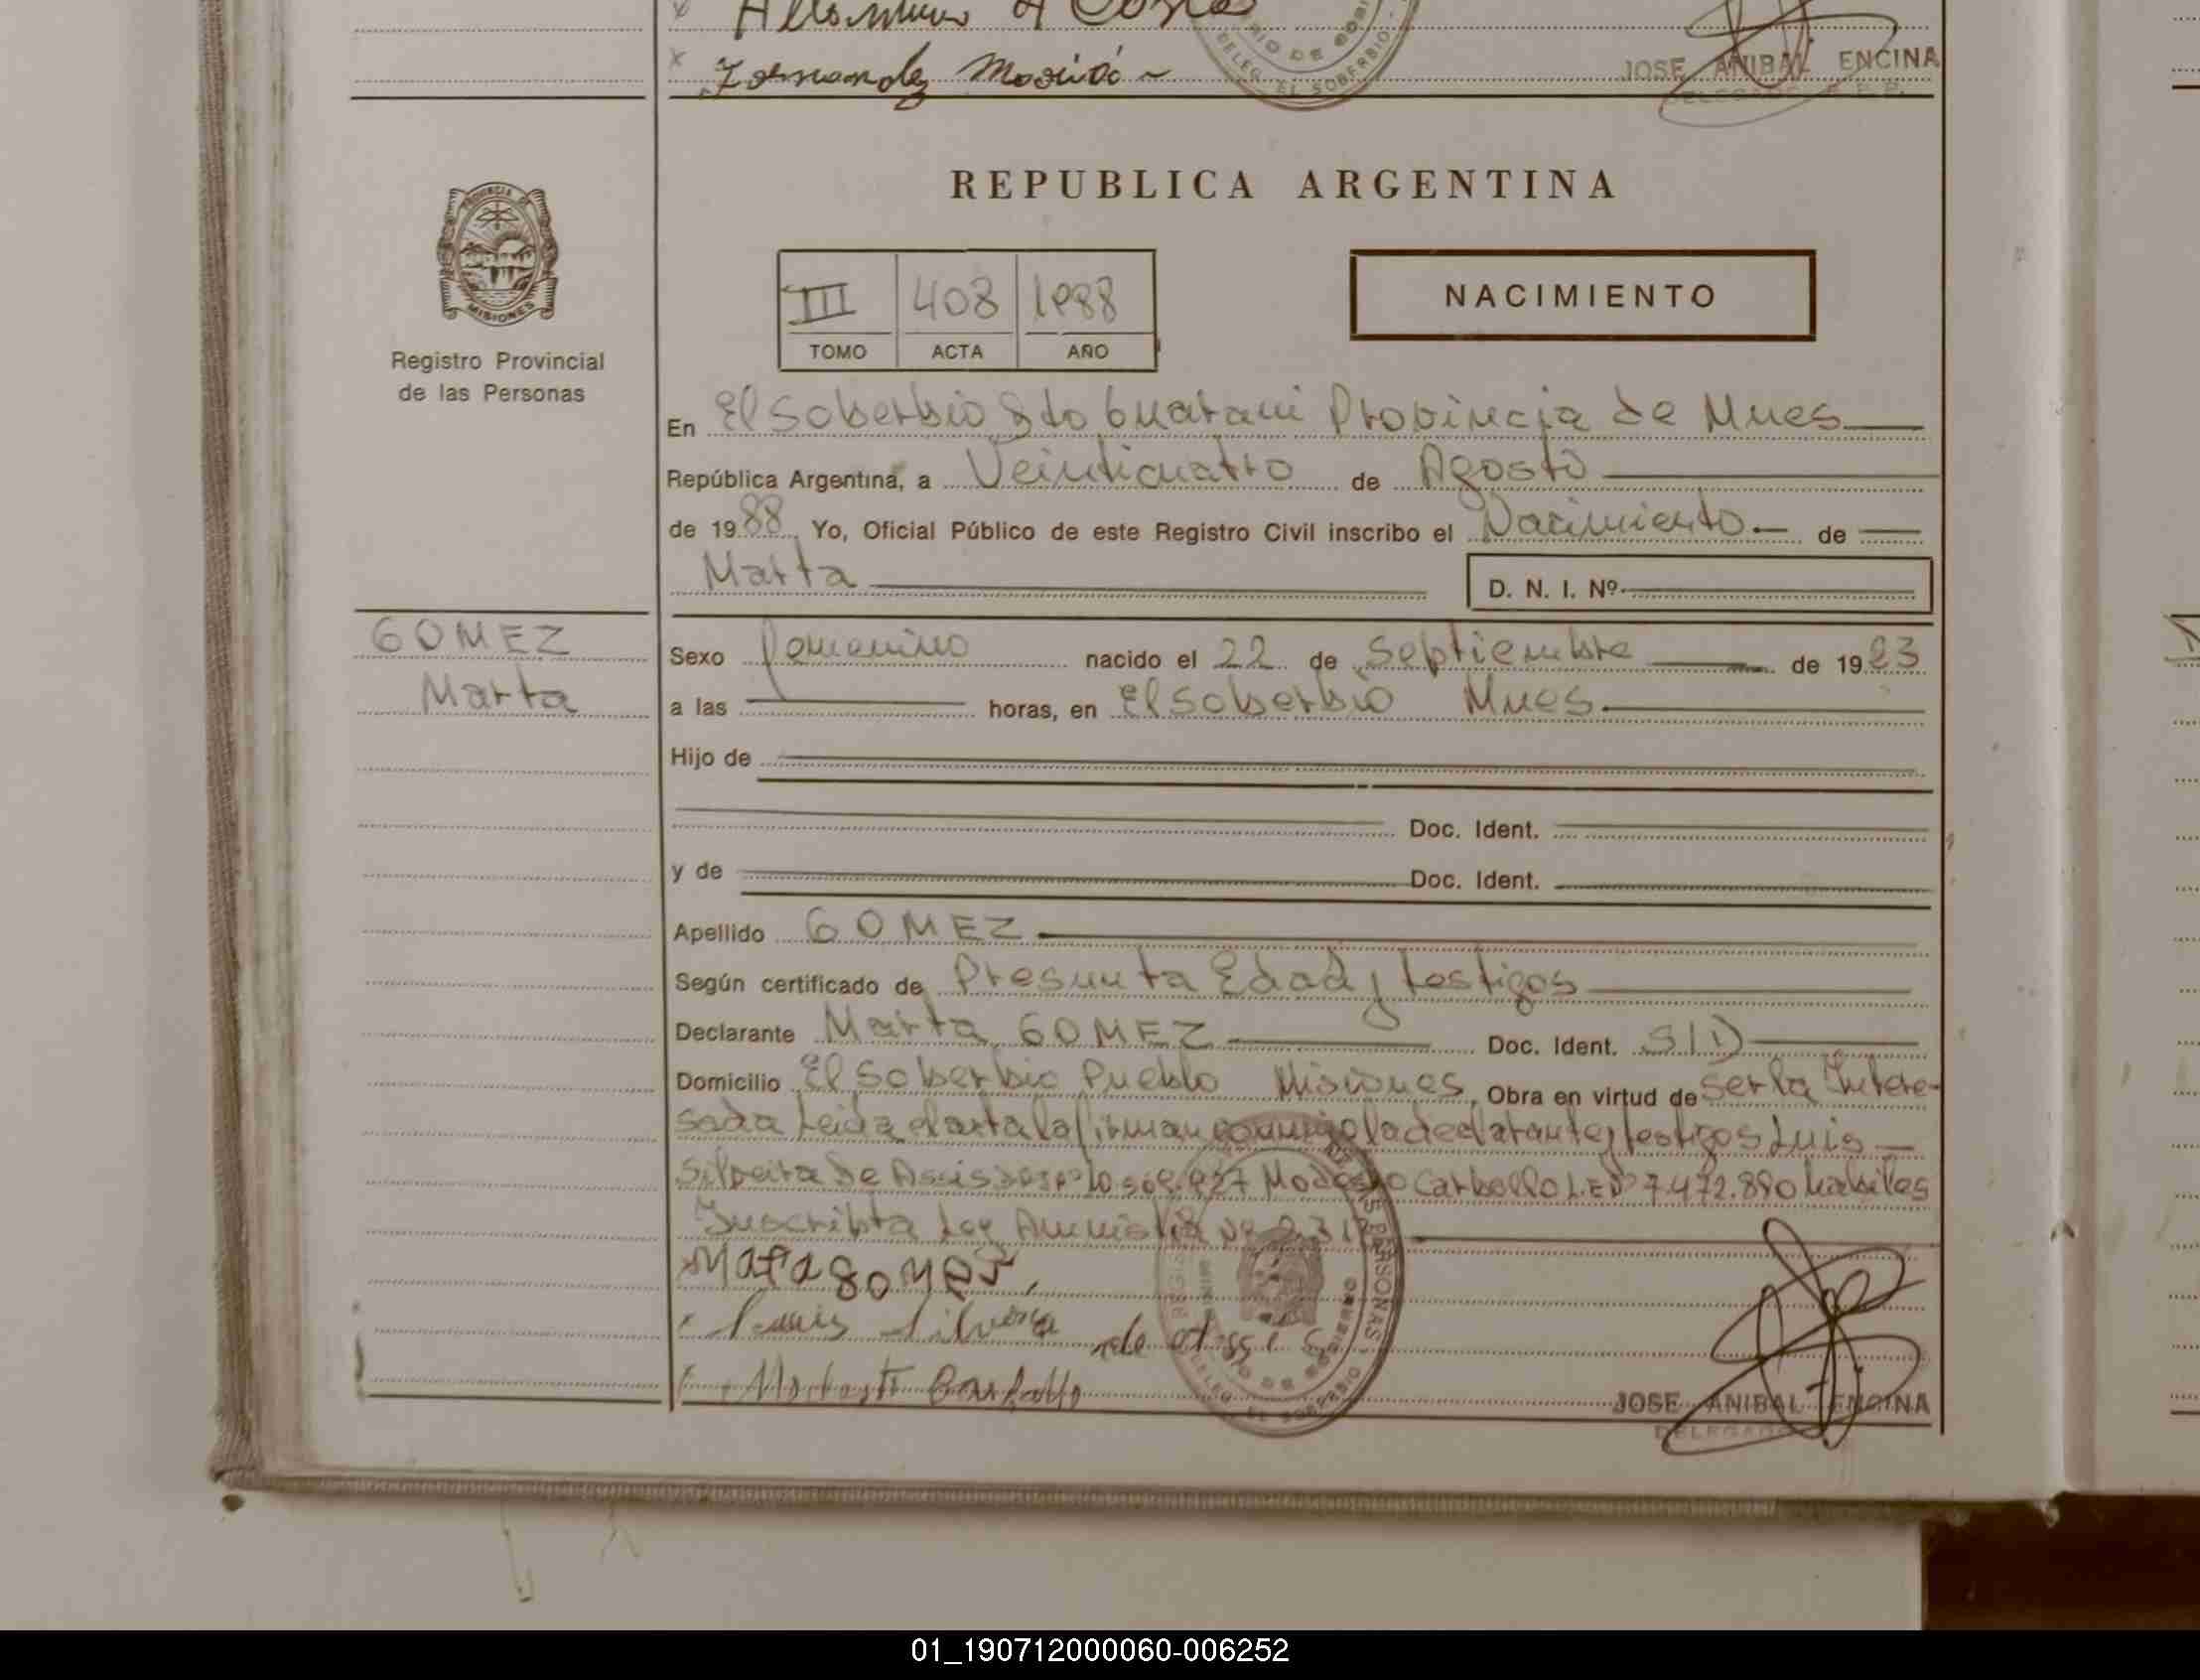 Fernandez
DELEG. EL SOBERBIO
JOSE ANIBAL ENCINA
DELEGADO R. E. P.
PROVINCIA DE
MISIONES
Registro Provincial
de las Personas
REPUBLICA ARGENTINA
III 408 1988
TOMO ACTA AÑO
NACIMIENTO
En El Soberbio Dto Guarani Provincia de Mnes
República Argentina, a Veinticuatro de Agosto
de 1988 Yo, Oficial Público de este Registro Civil inscribo el Nacimiento de
Marta D. N. I. Nº
GOMEZ
Marta
Sexo Femenino nacido el 22 de Septiembre de 19
a las horas, en El Soberbio Mnes
Hijo de
Doc. Ident.
y de Doc. Ident.
Apellido GOMEZ
Según certificado de Presunta Edad y testigos
Declarante Marta GOMEZ Doc. Ident. S/D
Domicilio El Soberbio Pueblo Misiones Obra en virtud de ser la Intere-
sada Leida el acta la firman conmigo la declarante y testigos Luis
Silveira De Assis Modesto Carballo L.E Nº 7.472.890 habiles
Inscripta Ley Amnistia Nº
Mara gomes
Luis Silveira de Assis
Modesto Carballo
DELEG. EL SOBERBIO
JOSE ANIBAL ENCINA
DELEGADO
01_190712000060-006252